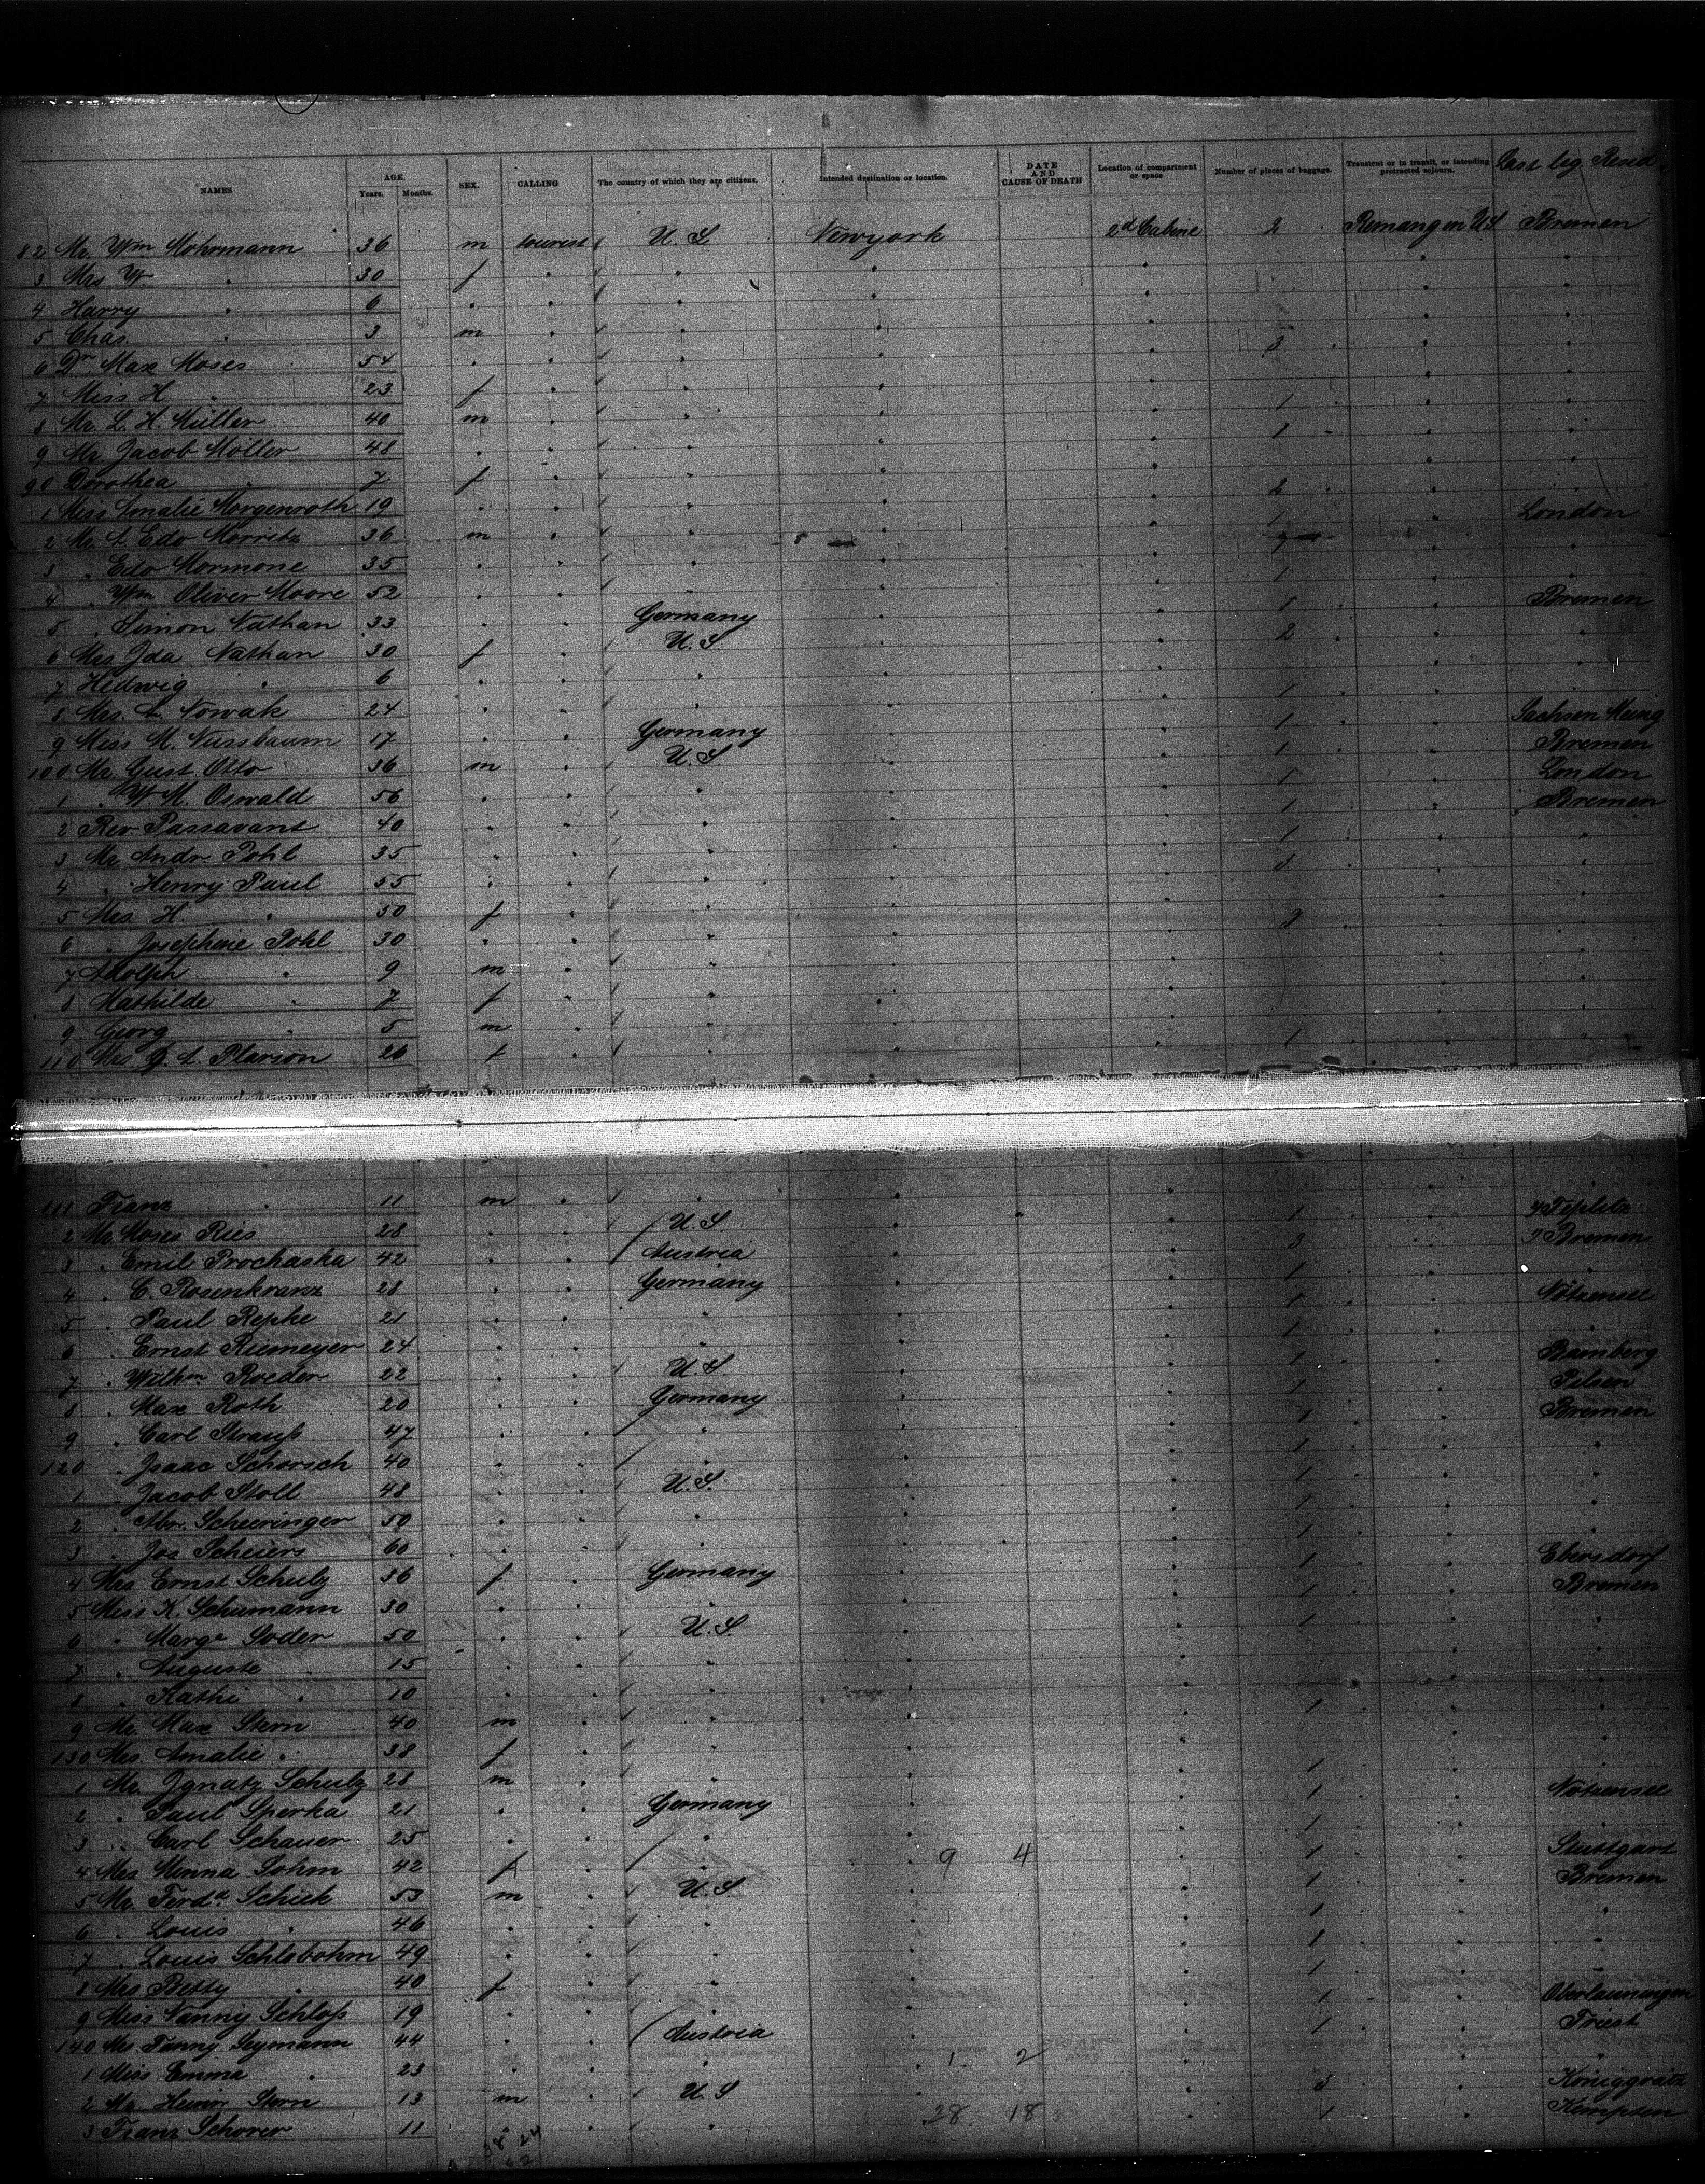 NAMES AGE. Years. Months. SEX. CALLING The country of which they are citizens. Intended destination or location. DATE AND CAUSE OF DEATH Location of compartment or space Number of pieces of baggage. Transient or in transit, or intending protracted sojourn. Last leg. Resid
82 Mr. Wm Mohrmann 36 m tourist U.S Newyork 2d Cabine 2 Remang in US Bremen
3 Mrs W. " 30 f " " " " " "
4 Harry " 6 " " " " " " "
5 Chas. " 3 m " " " " " "
6 Dr Max Moses 54 " " " " " 3 " "
7 Miss H " 23 f " " " " " "
8 Mr. L. H. Müller 40 m " " " " 1 " "
9 Mr. Jacob Möller 48 " " " " " 1 " "
90 Dorothea " 7 f " " " " " "
1 Miss Amalie Morgenroth 19 " " " " " 2 " "
2 Mr. A. Edo Morritz 36 m " " " " 1 " London
3 " Edo Mormone 35 " " " " " " "
4 " Wm Oliver Moore 52 " " " " " 1 " "
5 " Simon Nathan 33 " " Germany " " 1 " Bremen
6 Mrs Ida Nathan 30 f " U.S " " 2 " "
7 Hedwig " 6 " " " " " " "
8 Mrs. A. Nowak 24 " " " " " 1 " "
9 Miss M. Nussbaum 17 " " Germany " " 1 " Sachsen Meing
100 Mr. Gust. Otto 36 m " U.S. " " 1 " Bremen
1 " W. M. Oswald 56 " " " " " 1 " London
2 Rev. Passavant 40 " " " " " 1 " Bremen
3 Mr. Andr. Pohl 35 " " " " " 1 " "
4 " Henry Paul 55 " " " " " 3 " "
5 Mrs. H. " 50 f " " " " " "
6 " Josephine Pohl 30 " " " " " 3 " "
7 Adolph " 9 m " " " " " "
8 Mathilde " 7 f " " " " " "
9 Georg " 5 m " " " " " "
110 Mrs. A. Plarson 26 f " " " " 1 " "
111 Franz " 11 m " " " " " "
2 Mr Moses Ries 28 " " U.S " " 1 " Teplitz
3 " Emil Prochaska 42 " " Austria " " 3 " Bremen
4 " C. Rosenkranz 28 " " Germany " " 1 " "
5 " Paul Rephe 21 " " " " " 1 " Nötzensee
6 " Ernst Riemeyer 24 " " " " " 1 " "
7 " Wilhm. Roeder 22 " " U.S. " " 1 " Bamberg
8 " Max Roth 20 " " Germany " " 1 " Pilsen
9 " Carl Strauß 47 " " " " " 1 " Bremen
120 " Isaac Schorsch 40 " " " " " 1 " "
1 " Jacob Stoll 48 " " U.S. " " 1 " "
2 " Abr. Scheeringer 50 " " " " " 1 " "
3 " Jos Scheiers 60 " " " " " 1 " "
4 Mrs Ernst Schulz 36 f " Germany " " 1 " Ebersdorf
5 Miss K. Schumann 30 " " " " " 1 " Bremen
6 " Marge Soder 50 " " U.S. " " 1 " "
7 " Auguste " 15 " " " " " " "
8 " Kathi " 10 " " " " " " "
9 Mr. Max Stern 40 m " " " " 1 " "
130 Mrs. Amalie " 38 f " " " " " "
1 Mr. Ignatz Schulz 28 m " " " " 1 " "
2 " Paul Sperka 21 " " Germany " " 1 " Nötzensee
3 " Carl Schauer 25 " " " " " 1 " "
4 Mrs Minna Sohm 42 f " " " 9 4 " 1 " Stuttgart
5 Mr. Ferdd. Schiek 53 m " U.S. " " 1 " Bremen
6 " Louis " 46 " " " " " 1 " "
7 " Louis Schlobohm 49 " " " " " 1 " "
8 Mrs Betty " 40 f " " " " 1 " "
9 Miss Nanny Schloß 19 " " " " " 1 " Oberlauringen
140 Mrs Fanny Seymann 44 " " Austria " " 1 " Triest
1 Miss Emma " 23 " " " " 1 2 " " "
2 Mr. Heinr Stern 13 m " U.S " " 3 " Königgrätz
3 Franz Schorer 11 " " " 28 18 " 1 " Kempten
24